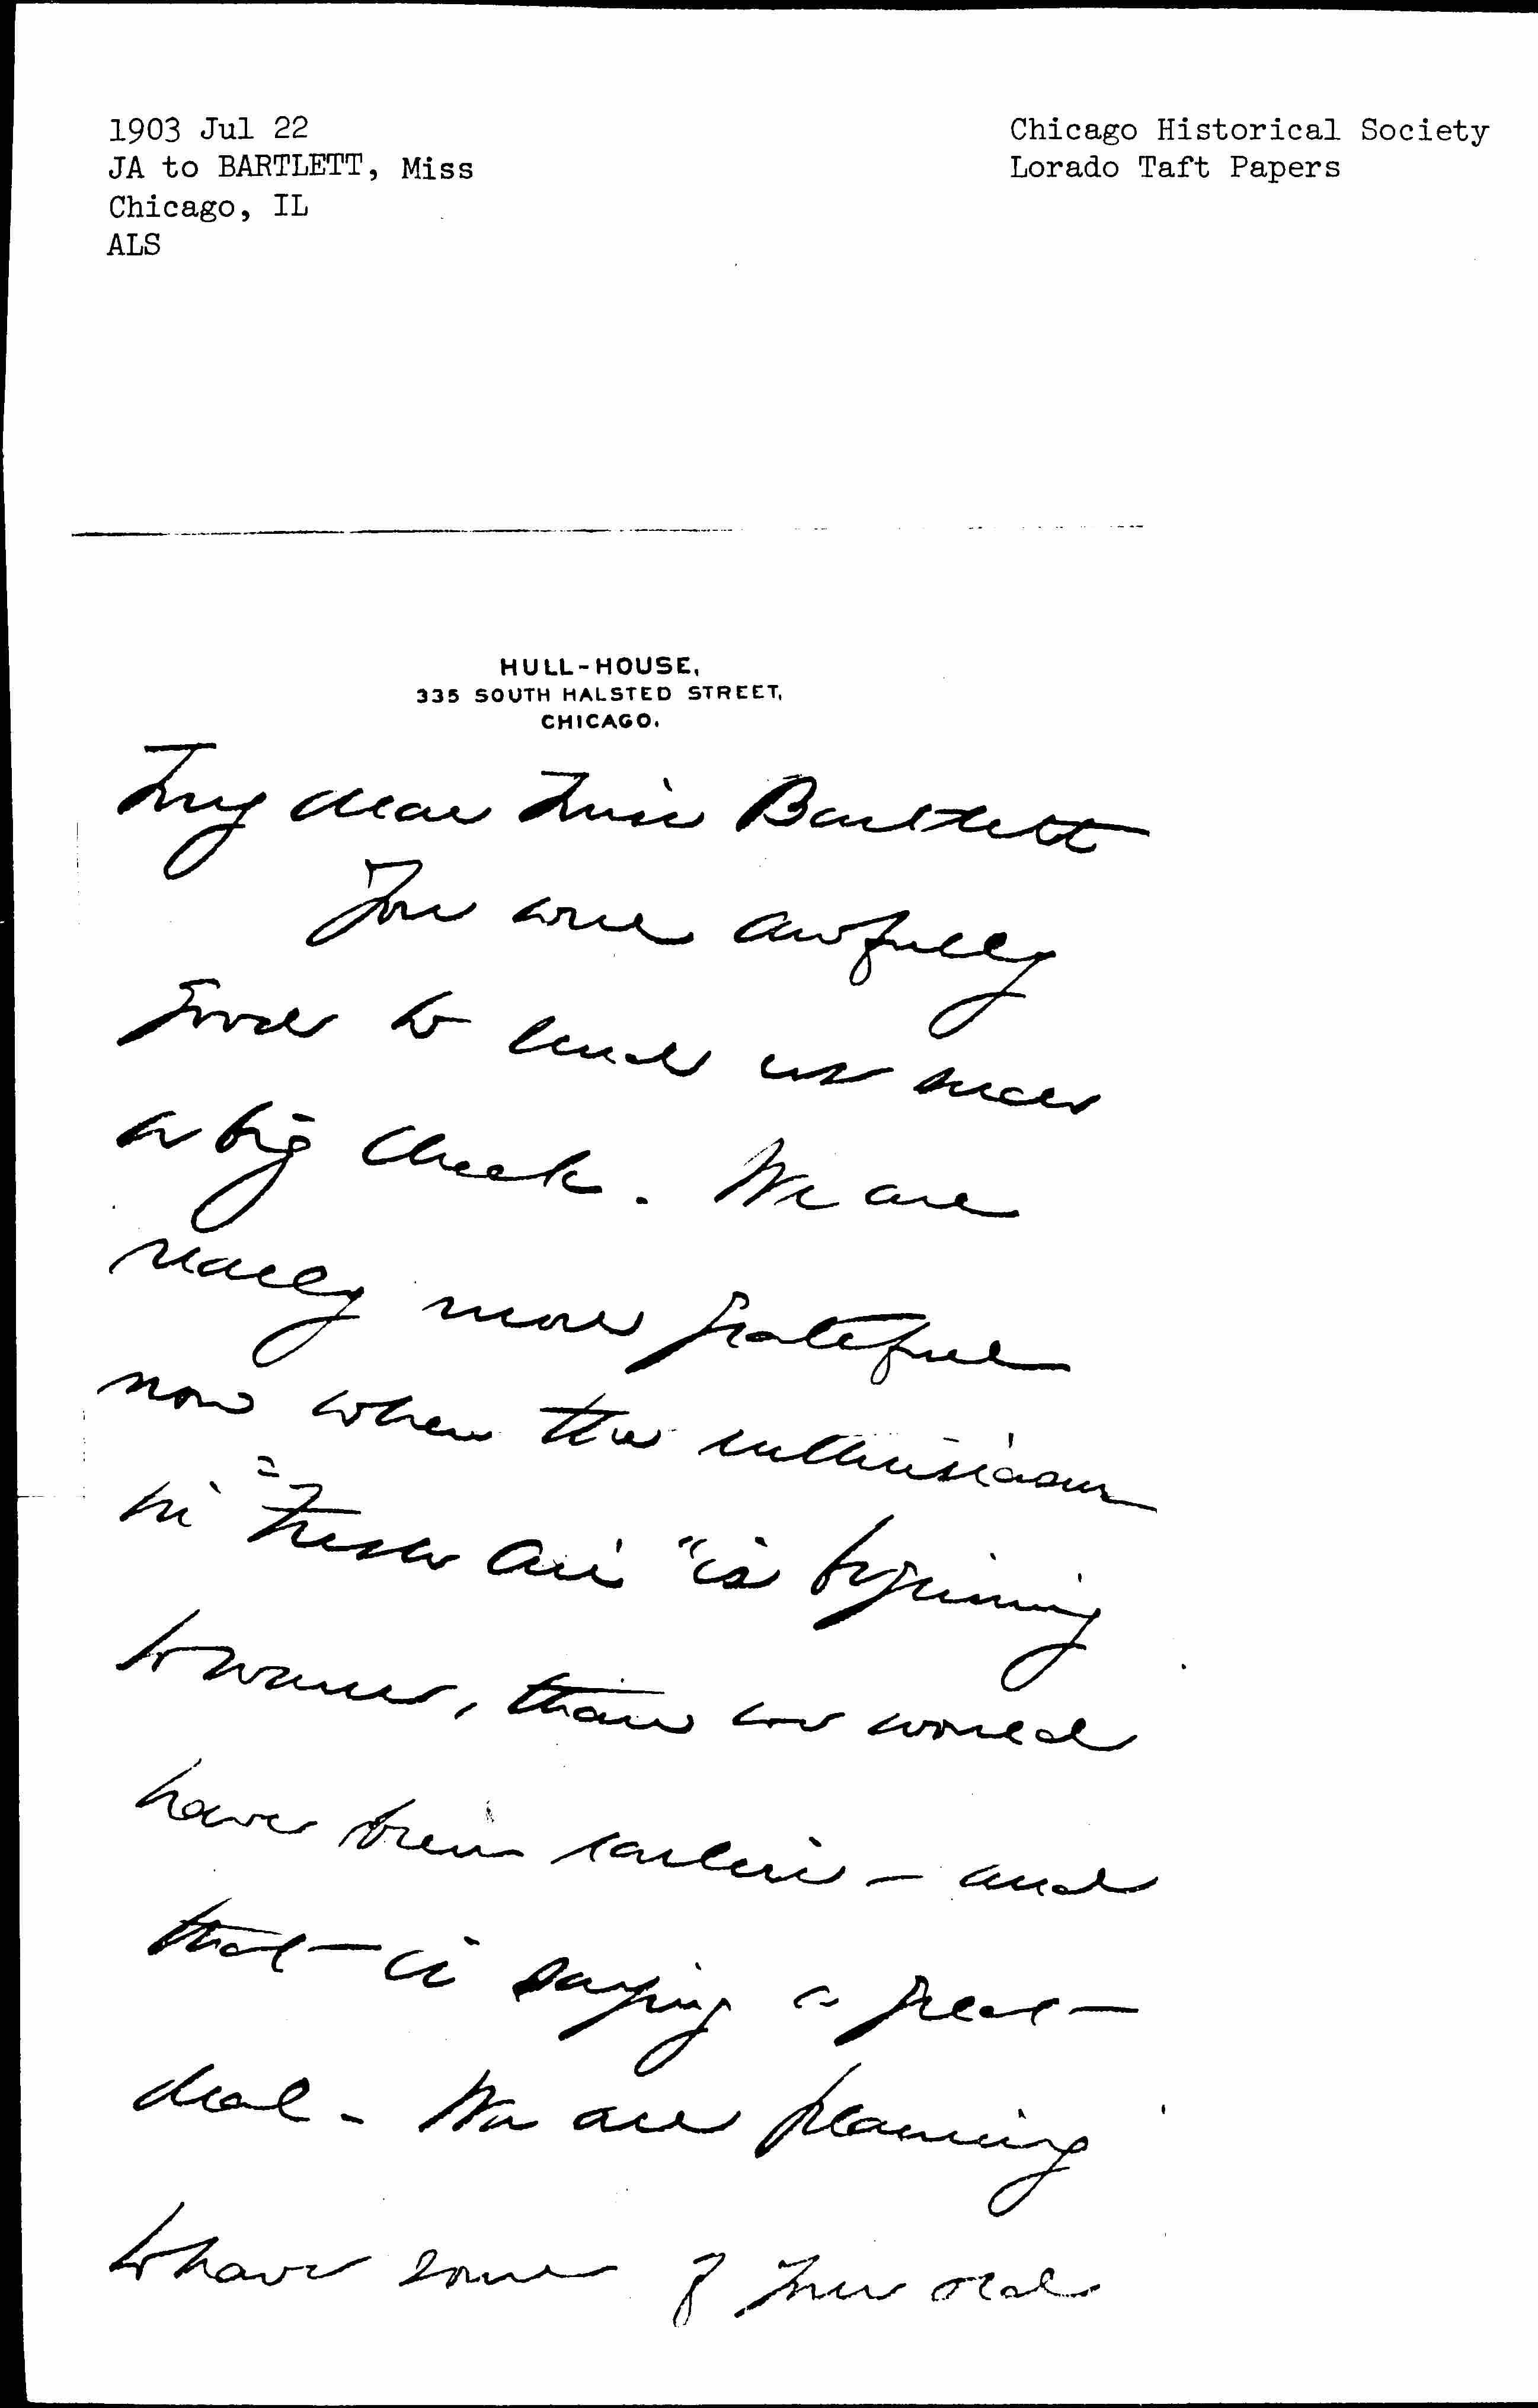 1903 Jul 22
JA to BARTLETT, Miss
Chicago, IL
ALS
Chicago Historical Society
Lorado Taft Papers
HULL-HOUSE,
335 SOUTH HALSTED STREET,
CHICAGO.
My dear Miss Bartlett
You were awfully
good to send us such
a big check. We are
really more grateful
now when the enthusiasm
in "Fresh Air" is beginning
to wane, than we would
have been earlier — and
that is saying a great
deal - We are planning
to have some of your old